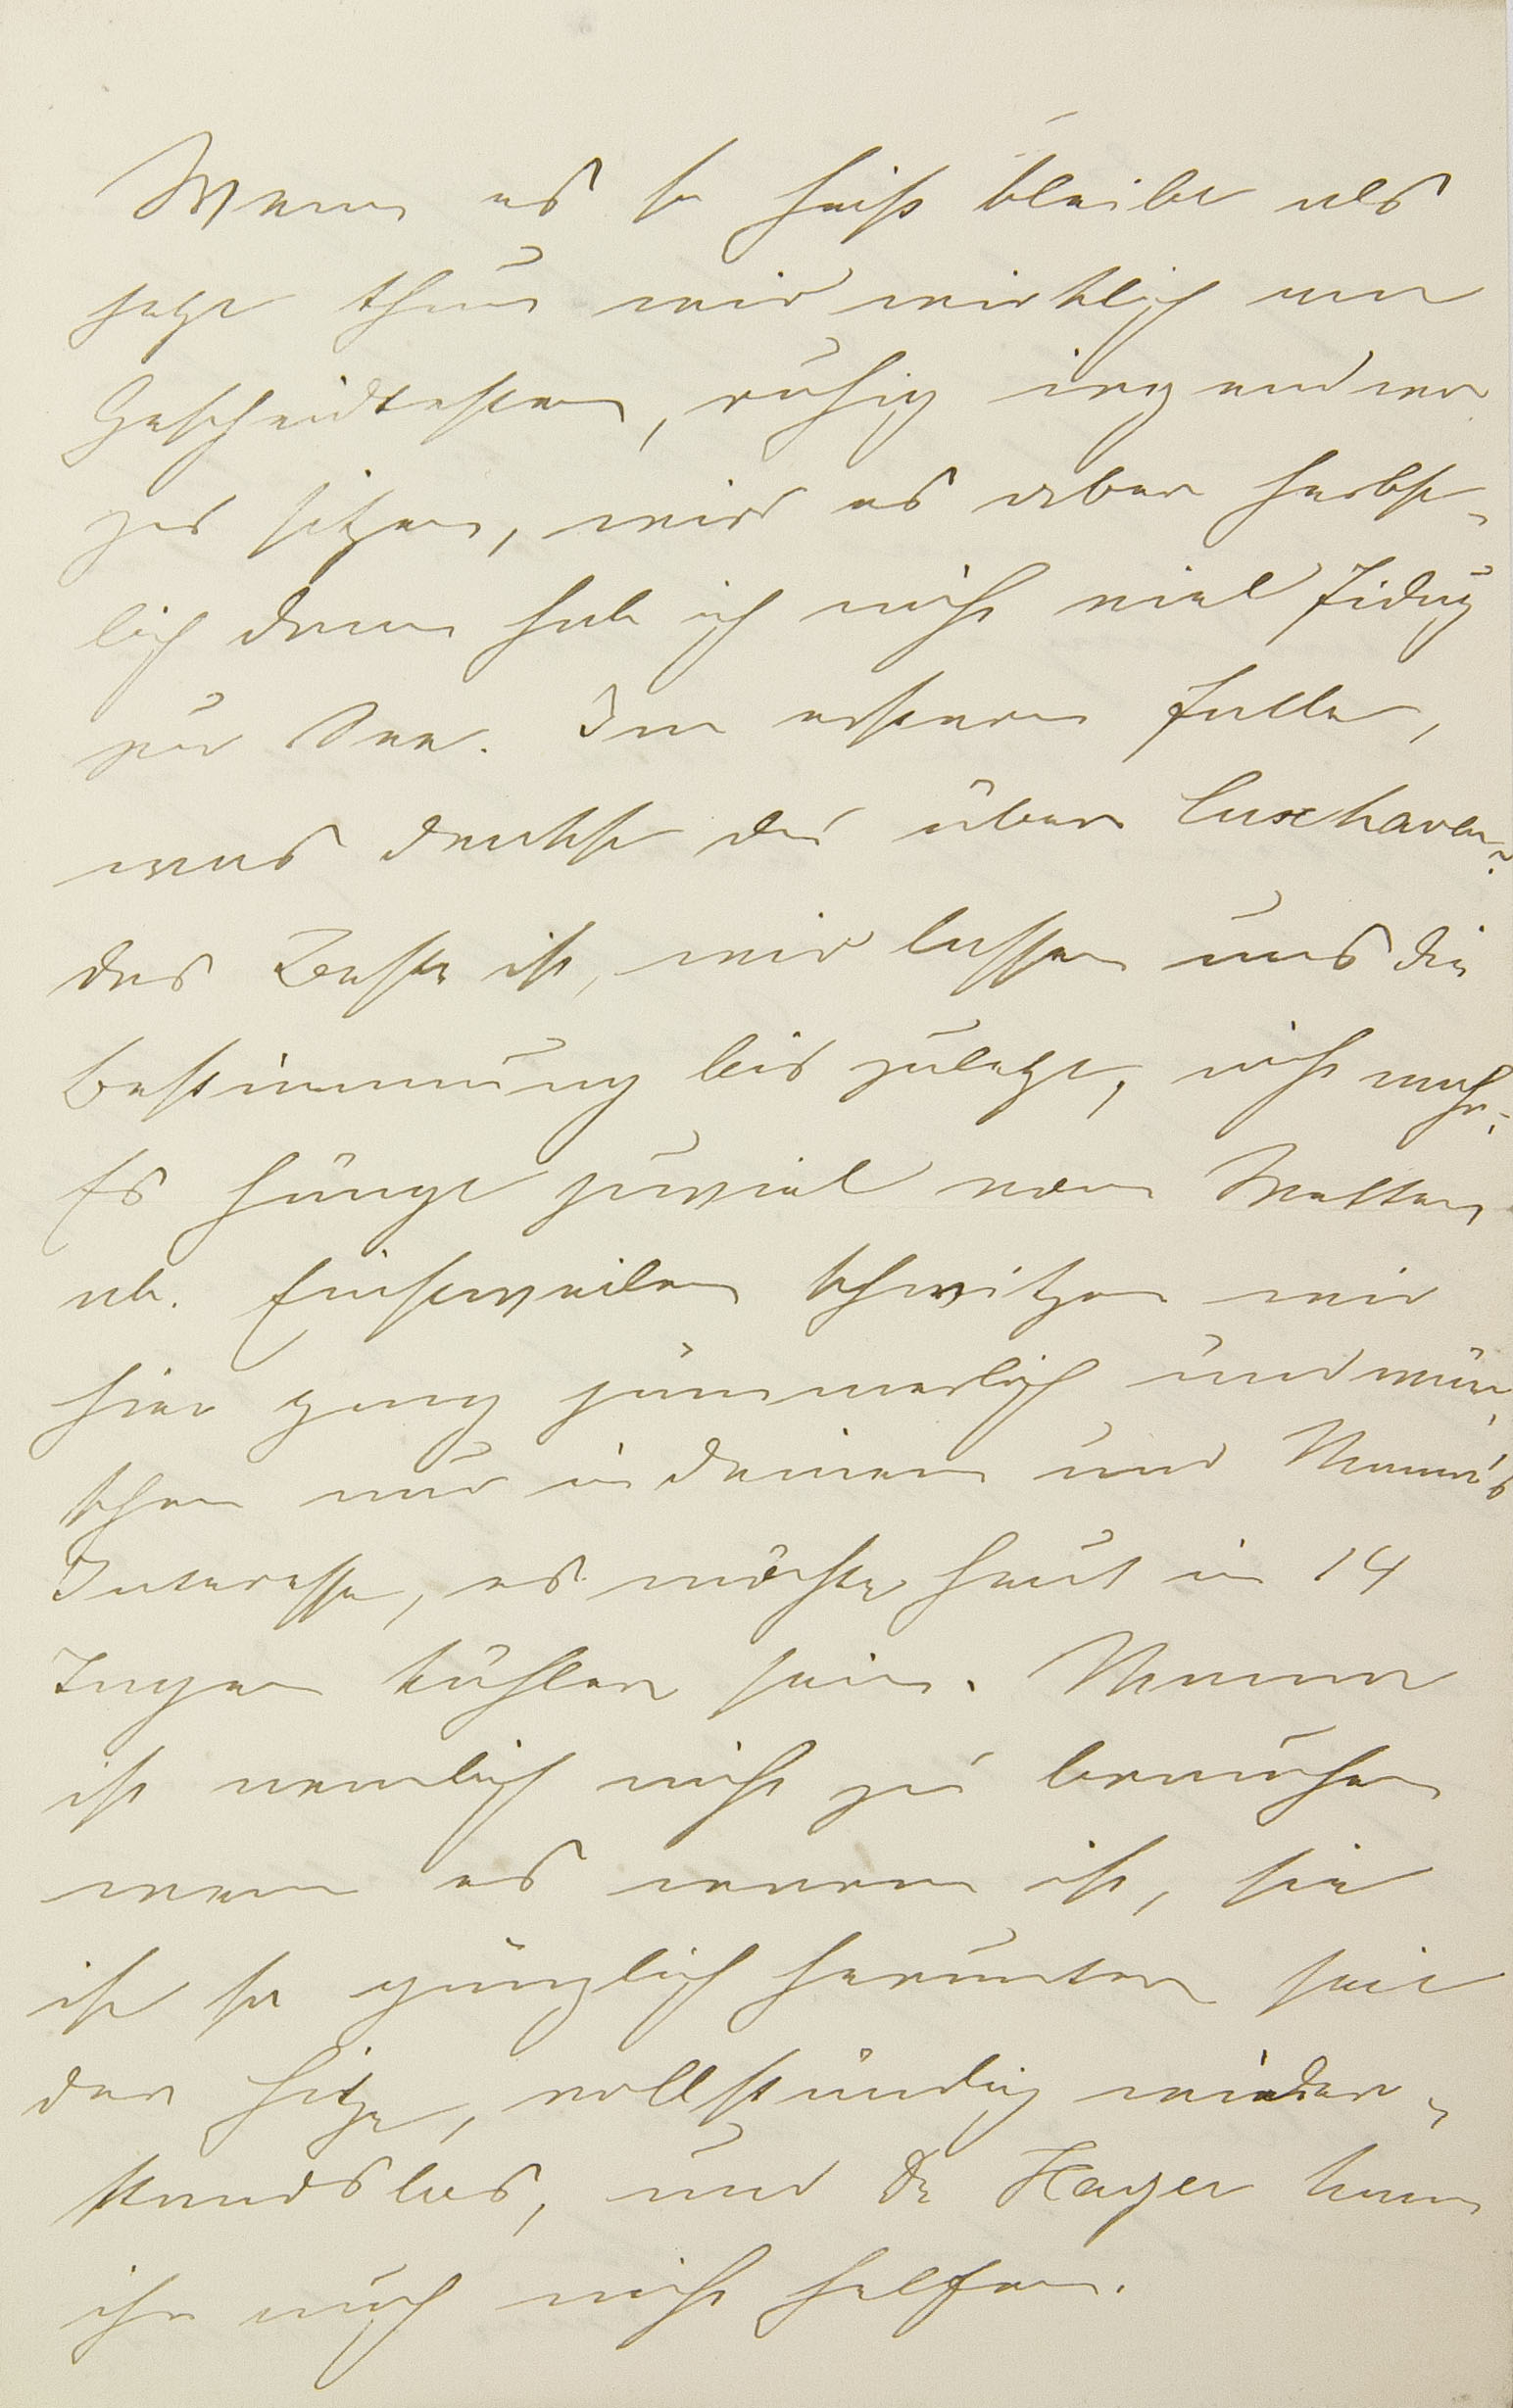 Wenn es so heiß bleibt als
jetzt thun wir wirklich am
Gescheidtesten, ruhig irgendwo
zu sitzen, wird es aber herbst-
lich dann hab ich nicht viel Fiduz
zur See. Im ersteren Falle,
was denkst du über Cuxhaven?
das Beste ist, wir lassen uns die
Bestimmung bis zuletzt, nicht wahr?
Es hängt zuviel vom Wetter
ab. Einstweilen schwitzen wir
hier ganz jämmerlich und wün-
schen nur in deinem und Mama's
Interesse, es möchte heut in 14
Tagen kühler sein. Mama
ist nemlich nicht zu brauchen
wenn es warm ist, sie
ist so gänzlich herunter seit
der Hitze, vollständig wieder-
standslos, und Dr Hayer kann
ihr auch nicht helfen.